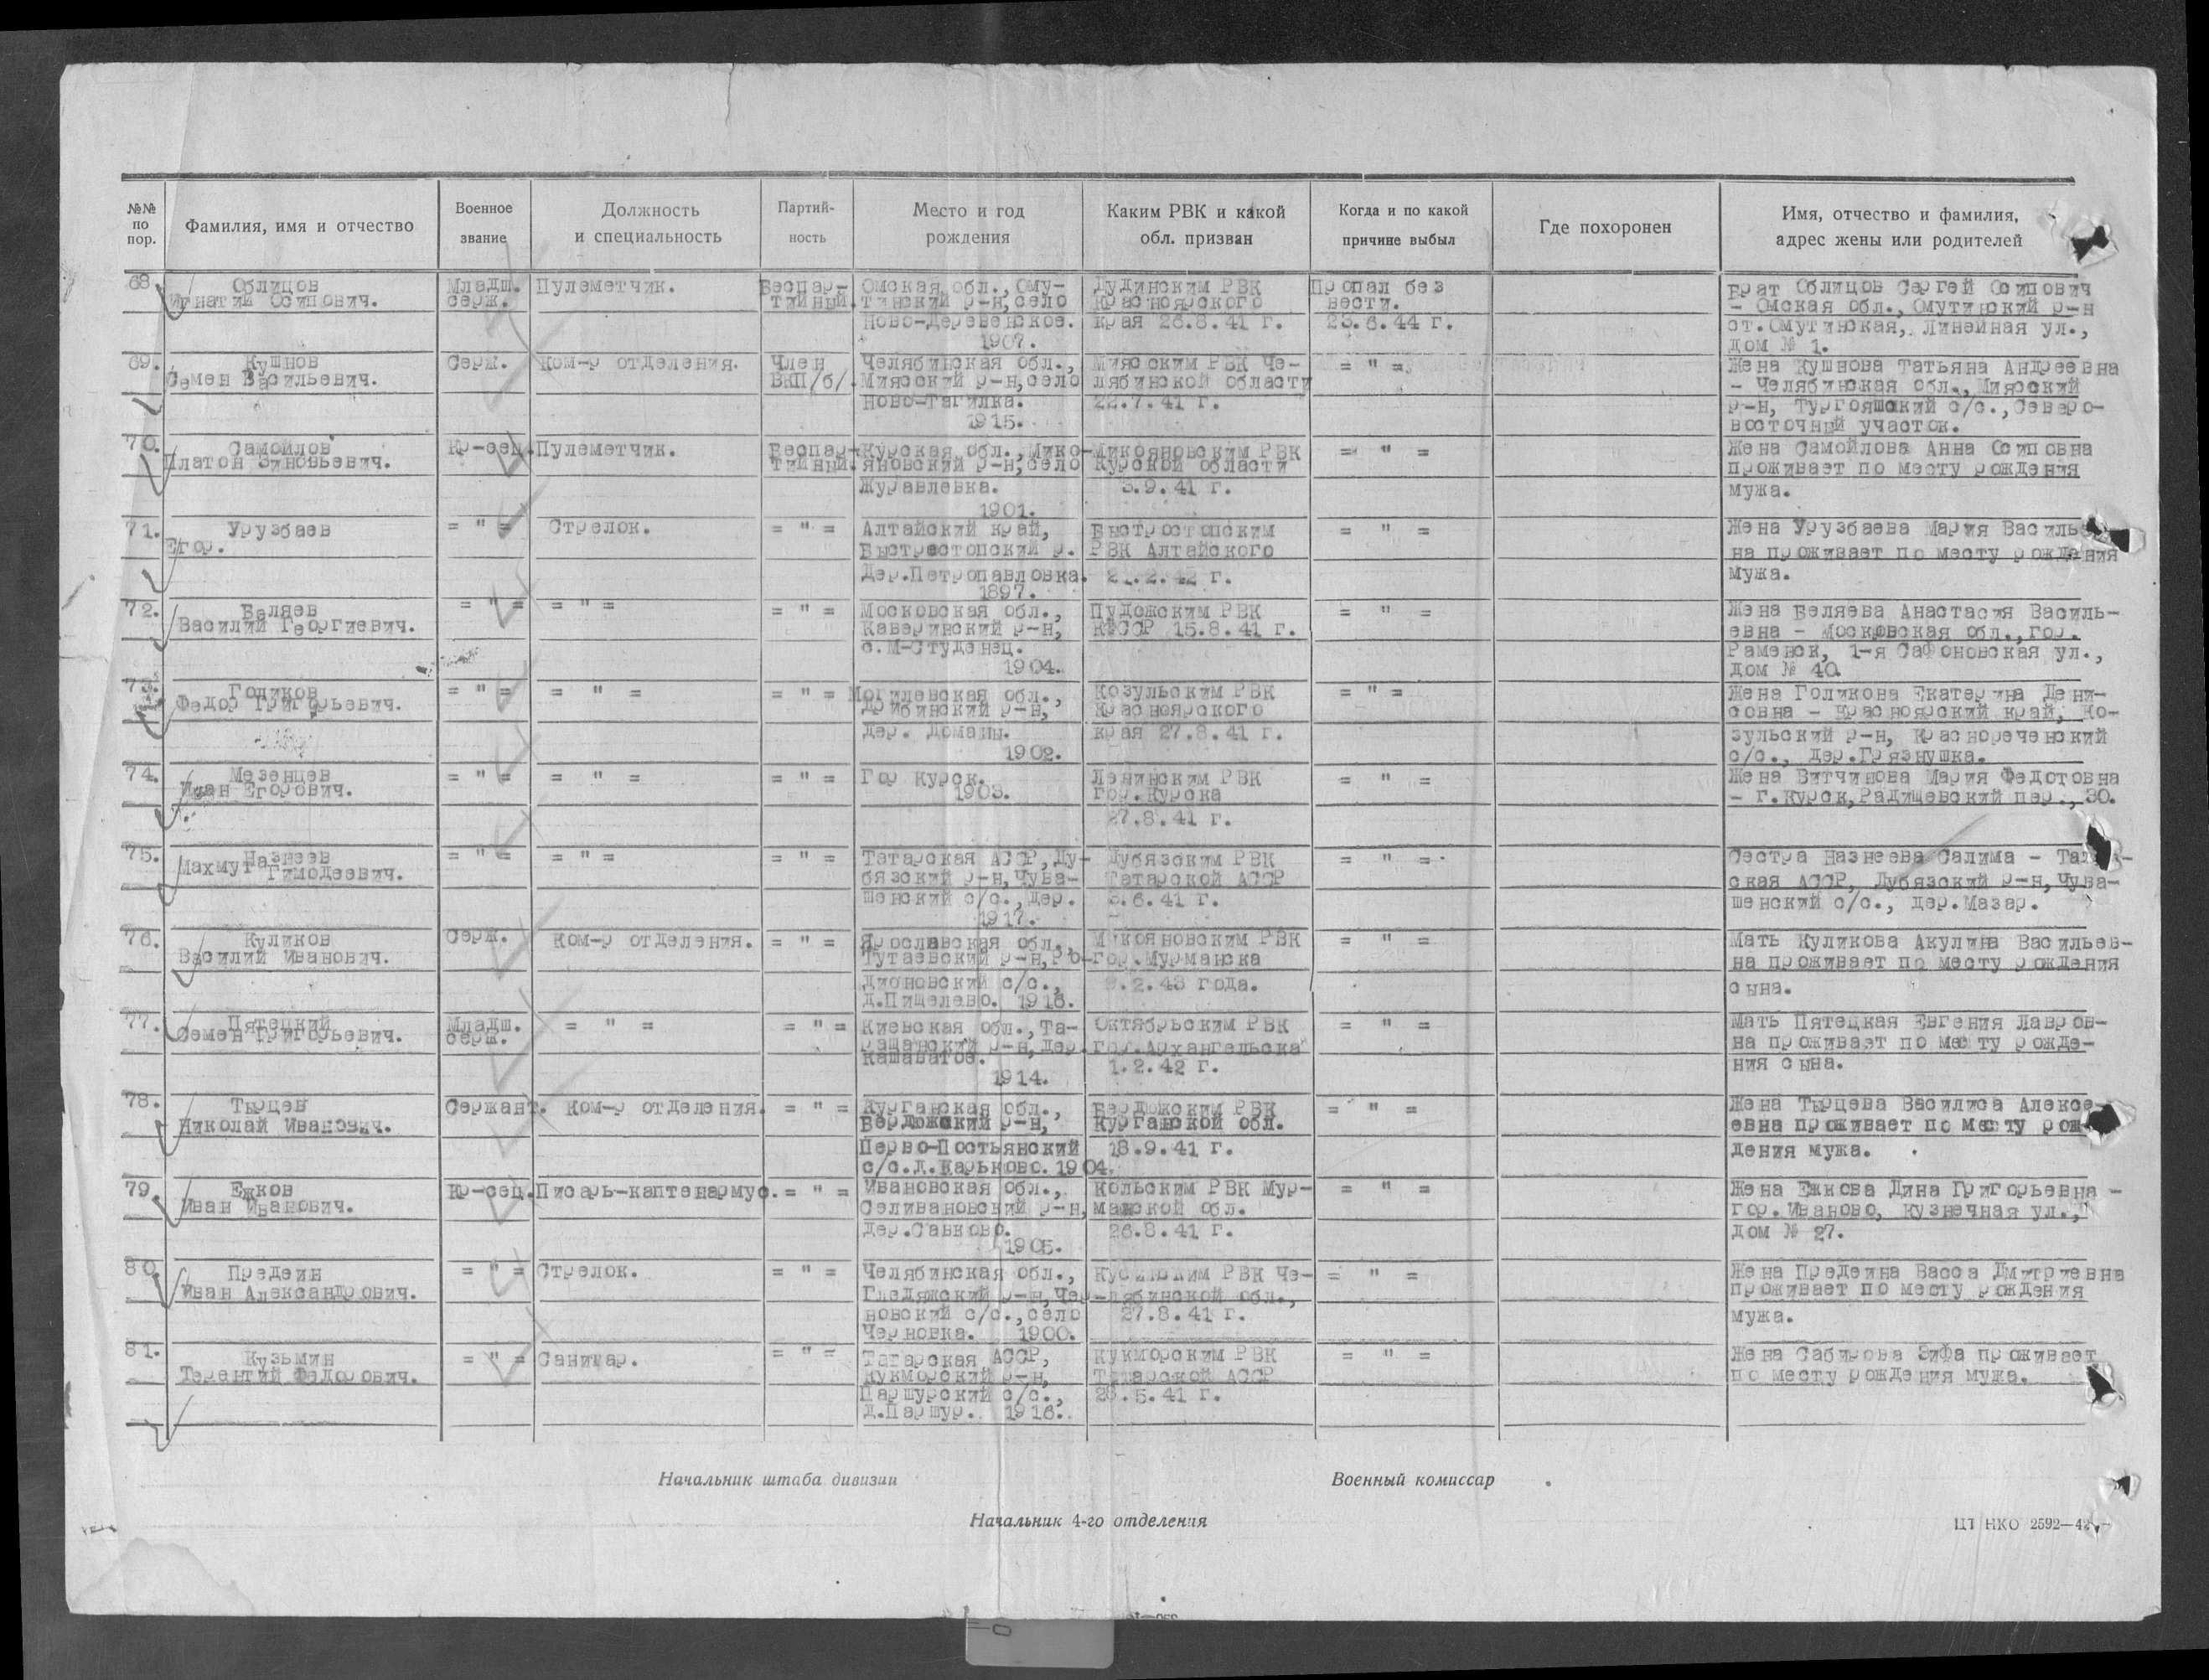 №№ по пор.
Фамилия, имя и отчество
Военное звание
Должность и специальность
Партий-ность
Место и год рождения
Каким РВК и какой обл. призван
Когда и по какой причине выбыл
Где похоронен
Имя, отчество и фамилия, адрес жены или родителей
68
Облицов
Игнатий Осипович.
Младш.
серж.
Пулеметчик.
Беспар-
тийный.
Омская обл., Ому-
тинский р-н, село
Ново-Деревенское.
1907.
Дудинским РВК
Красноярского
края 26.8.41 г.
Пропал без
вести.
23.6.44 г.
Брат Облицов Сергей Осипович
- Омская обл., Омутинский р-н
ст.Омутинская, Линейная ул.,
дом № 1.
69.
Кушнов
Семен Васильевич.
Серж.
Ком-р отделения.
Член
ВКП/б/.
Челябинская обл.,
Миясский р-н, село
Ново-Тагилка.
1915.
Миясским РВК Че-
лябинской области
22.7.41 г.
= " =
Жена Кушнова Татьяна Андреевна
- Челябинская обл., Миясский
р-н, Тургояшский с/с., Северо-
восточный участок.
70.
Самойлов
Платон Зиновьевич.
Кр-сец.
Пулеметчик.
Беспар-
тийный.
Курская обл., Мико-
яновский р-н, село
Журавлевка.
1901.
Микояновским РВК
Курской области
3.9.41 г.
= " =
Жена Самойлова Анна Осиповна
проживает по месту рождения
мужа.
71.
Урузбаев
Егор.
= " =
Стрелок.
= " =
Алтайский край,
Быстрестопский р.
Дер.Петропавловка.
1897.
Быстростопским
РВК Алтайского
2 .2.42 г.
= " =
Жена Урузбаева Мария Василь
на проживает по месту рождения
мужа.
72.
Беляев
Василий Георгиевич.
= " =
= " =
= " =
Московская обл.,
Каверинский р-н,
с.М-Студенец.
1904.
Пудожским РВК
КФССР 15.8.41 г.
= " =
Жена Беляева Анастасия Василь-
евна - Московская обл., гор.
Раменск, 1-я Сафоновская ул.,
дом № 40.
73.
Голиков
Федор Григорьевич.
= " =
= " =
= " =
Могилевская обл.,
Дрибинский р-н,
дер. Доманы.
1902.
Козульским РВК
Красноярского
края 27.8.41 г.
= " =
Жена Голикова Екатерина Дени-
совна - Красноярский край, Ко-
зульский р-н, Краснореченский
с/с., дер.Грязнушка.
74.
Мезенцев
Иван Егорович.
= " =
= " =
= " =
Гор Курск.
1903.
Ленинским РВК
гор.Курска
27.8.41 г.
= " =
Жена Витчинова Мария Федотовна
- г.Курск, Радищевский пер., 30.
75.
Назнеев
Махмут Гимодеевич.
= " =
= " =
= " =
Татарская АССР, Ду-
бязский р-н, Чува-
шенский с/с., дер.
1917.
Дубязским РВК
Татарской АССР
3.6.41 г.
= " =
Сестра Назнеева Салима - Татар-
ская АССР, Дубязский р-н, Чува-
шенский с/с., дер.Мазар.
76.
Куликов
Василий Иванович.
Серж.
Ком-р отделения.
= " =
Ярославская обл.,
Тутаевский р-н, Ро-
дионовский с/с.,
д.Пищелево. 1918.
Микояновским РВК
гор.Мурманска
.2.43 года.
= " =
Мать Куликова Акулина Васильев-
на проживает по месту рождения
сына.
77.
Пятецкий
Семен Григорьевич.
Младш.
серж.
= " =
= " =
Киевская обл., Та-
ращанский р-н, дер.
Кашаватое.
1914.
Октябрьским РВК
гор.Архангельска
1.2.42 г.
= " =
Мать Пятецкая Евгения Лавров-
на проживает по месту рожде-
ния сына.
78.
Тырцев
Николай Иванович.
Сержант.
Ком-р отделения.
= " =
Курганская обл.,
Бердюжский р-н,
Перво-Постьянский
с/с.д.Карьково. 1904.
Бердюжским РВК
Курганской обл.
18.9.41 г.
= " =
Жена Тырцева Василиса Алексе-
евна проживает по месту рож-
дения мужа.
79.
Ежков
Иван Иванович.
Кр-сец.
Писарь-каптенармус.
= " =
Ивановская обл.,
Селивановский р-н,
дер.Савково.
1905.
Кольским РВК Мур-
манской обл.
26.8.41 г.
= " =
Жена Ежкова Дина Григорьевна -
гор.Иваново, Кузнечная ул.,
дом № 27.
80.
Предеин
Иван Александрович.
= " =
Стрелок.
= " =
Челябинская обл.,
Гледяжский р-н, Чер-
новский с/с., село
Черновка. 1900.
Кусинским РВК Че-
лябинской обл.,
27.8.41 г.
= " =
Жена Предеина Васса Дмитриевна
проживает по месту рождения
мужа.
81.
Кузьмин
Терентий Федорович.
= " =
Санитар.
= " =
Татарская АССР,
Кукморский р-н,
Паршурский с/с.,
д.Паршур. 1916.
Кукморским РВК
Татарской АССР
28.5.41 г.
= " =
Жена Сабирова Зифа проживает
по месту рождения мужа.
Начальник штаба дивизии
Военный комиссар
Начальник 4-го отделения
ЦТ НКО 2592—42